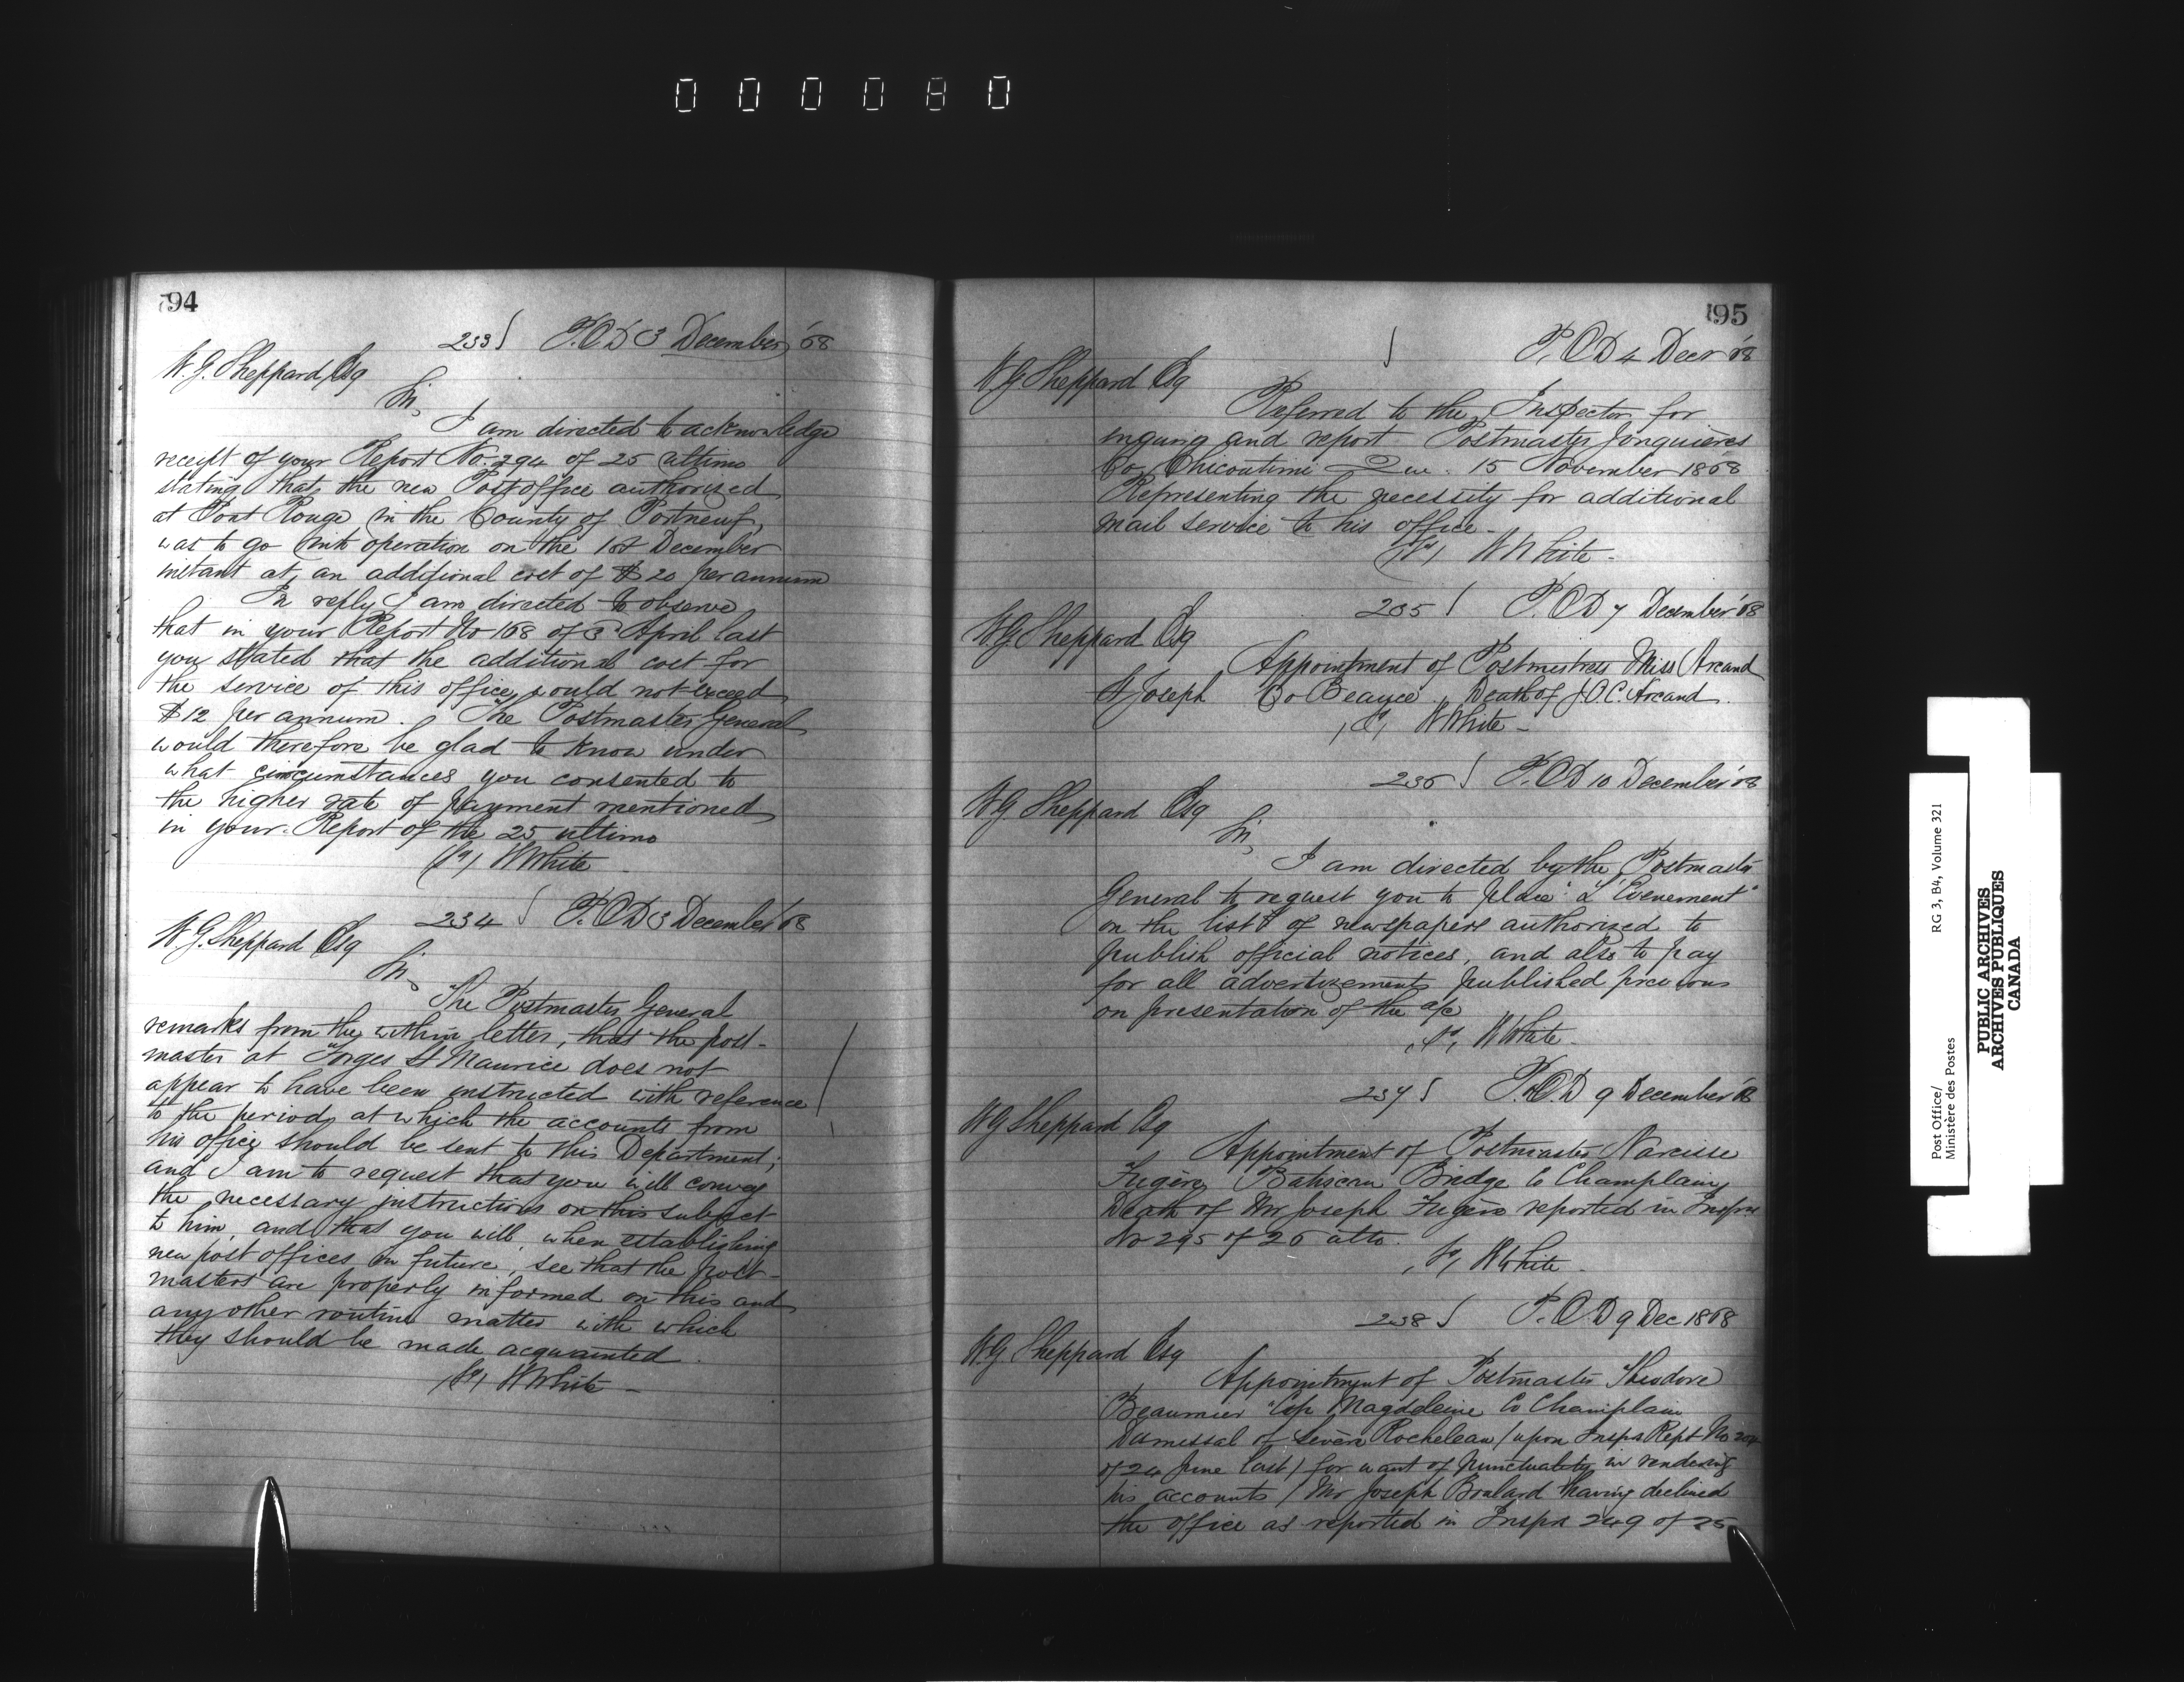 000080
94
233 P.O.D 3 December '68
W.G. Sheppard Esq
Sir,
I am directed to acknowledge
receipt of your Report No. 294 of 25 ultimo
stating that the new Post office authorized
at Pont Rouge in the County of Portneuf,
was to go into operation on the 1st December
instant at an additional cost of $20 per annum
In reply I am directed to observe
that in your Report No 168 of 3 April last
you stated that the additional cost for
the service of this office, would not exceed
$12 per annum. The Postmaster General
would therefore be glad to know under
what circumstances you consented to
the higher rate of payment mentioned
in your Report of the 25 ultimo
(Sd) W White
234 P.O.D 3 December '68
W.G. Sheppard Esq
Sir,
The Postmaster General
remarks from the within letter, that the post-
master at Forges St Maurice does not
appear to have been instructed with reference
to the periods at which the accounts from
his office should be sent to this Department;
and I am to request that you will convey
the necessary instructions on this subject
to him, and that you will, when establishing
new post offices in future, see that the post-
masters are properly informed on this and
any other routine matter with which
they should be made acquainted.
(Sd) W White -
95
P.O.D 4 Decr '68
W G Sheppard Esq
Referred to the Inspector for
inquiry and report Postmaster Jonquieres
Co Chicoutimi Que. 15 November 1868
Representing the necessity for additional
mail service to his office -
(Sd) W White -
235 P.O.D 7 December '68
W.G Sheppard Esq
Appointment of Postmistress Miss Arcand
St Joseph Co Beauce, Death of J.O.C. Arcand.
(Sd) W White -
236 P.O.D 10 December '68
W G Sheppard Esq
Sir,
I am directed by the Postmaster
General to request you to place "L'Evenement"
on the list of newspapers authorized to
publish official notices, and also to pay
for all advertizements published previous
on presentation of the a/c
(Sd) W White -
237 P.O.D 9 December '68
W G Sheppard Esq
Appointment of Postmaster Narcisse
Fugère Batiscan Bridge Co Champlain
Death of Mr Joseph Fugère reported in Insprs
No 295 of 26 ulto.
(Sd) W White -
238 P.O.D 9 Dec 1868
W.G Sheppard Esq
Appointment of Postmaster Theodore
Beaumier Cap Magdeleine Co Champlain
Dismissal of Sevère Rocheleau (upon Insprs Rept No
of 24 June last) for want of punctuality in rendering
his accounts (Mr Joseph Brulard having declined
the office as reported in Insprs 249 of 25
Post Office/
Ministère des Postes
RG 3, B4, Volume 321
PUBLIC ARCHIVES
ARCHIVES PUBLIQUES
CANADA